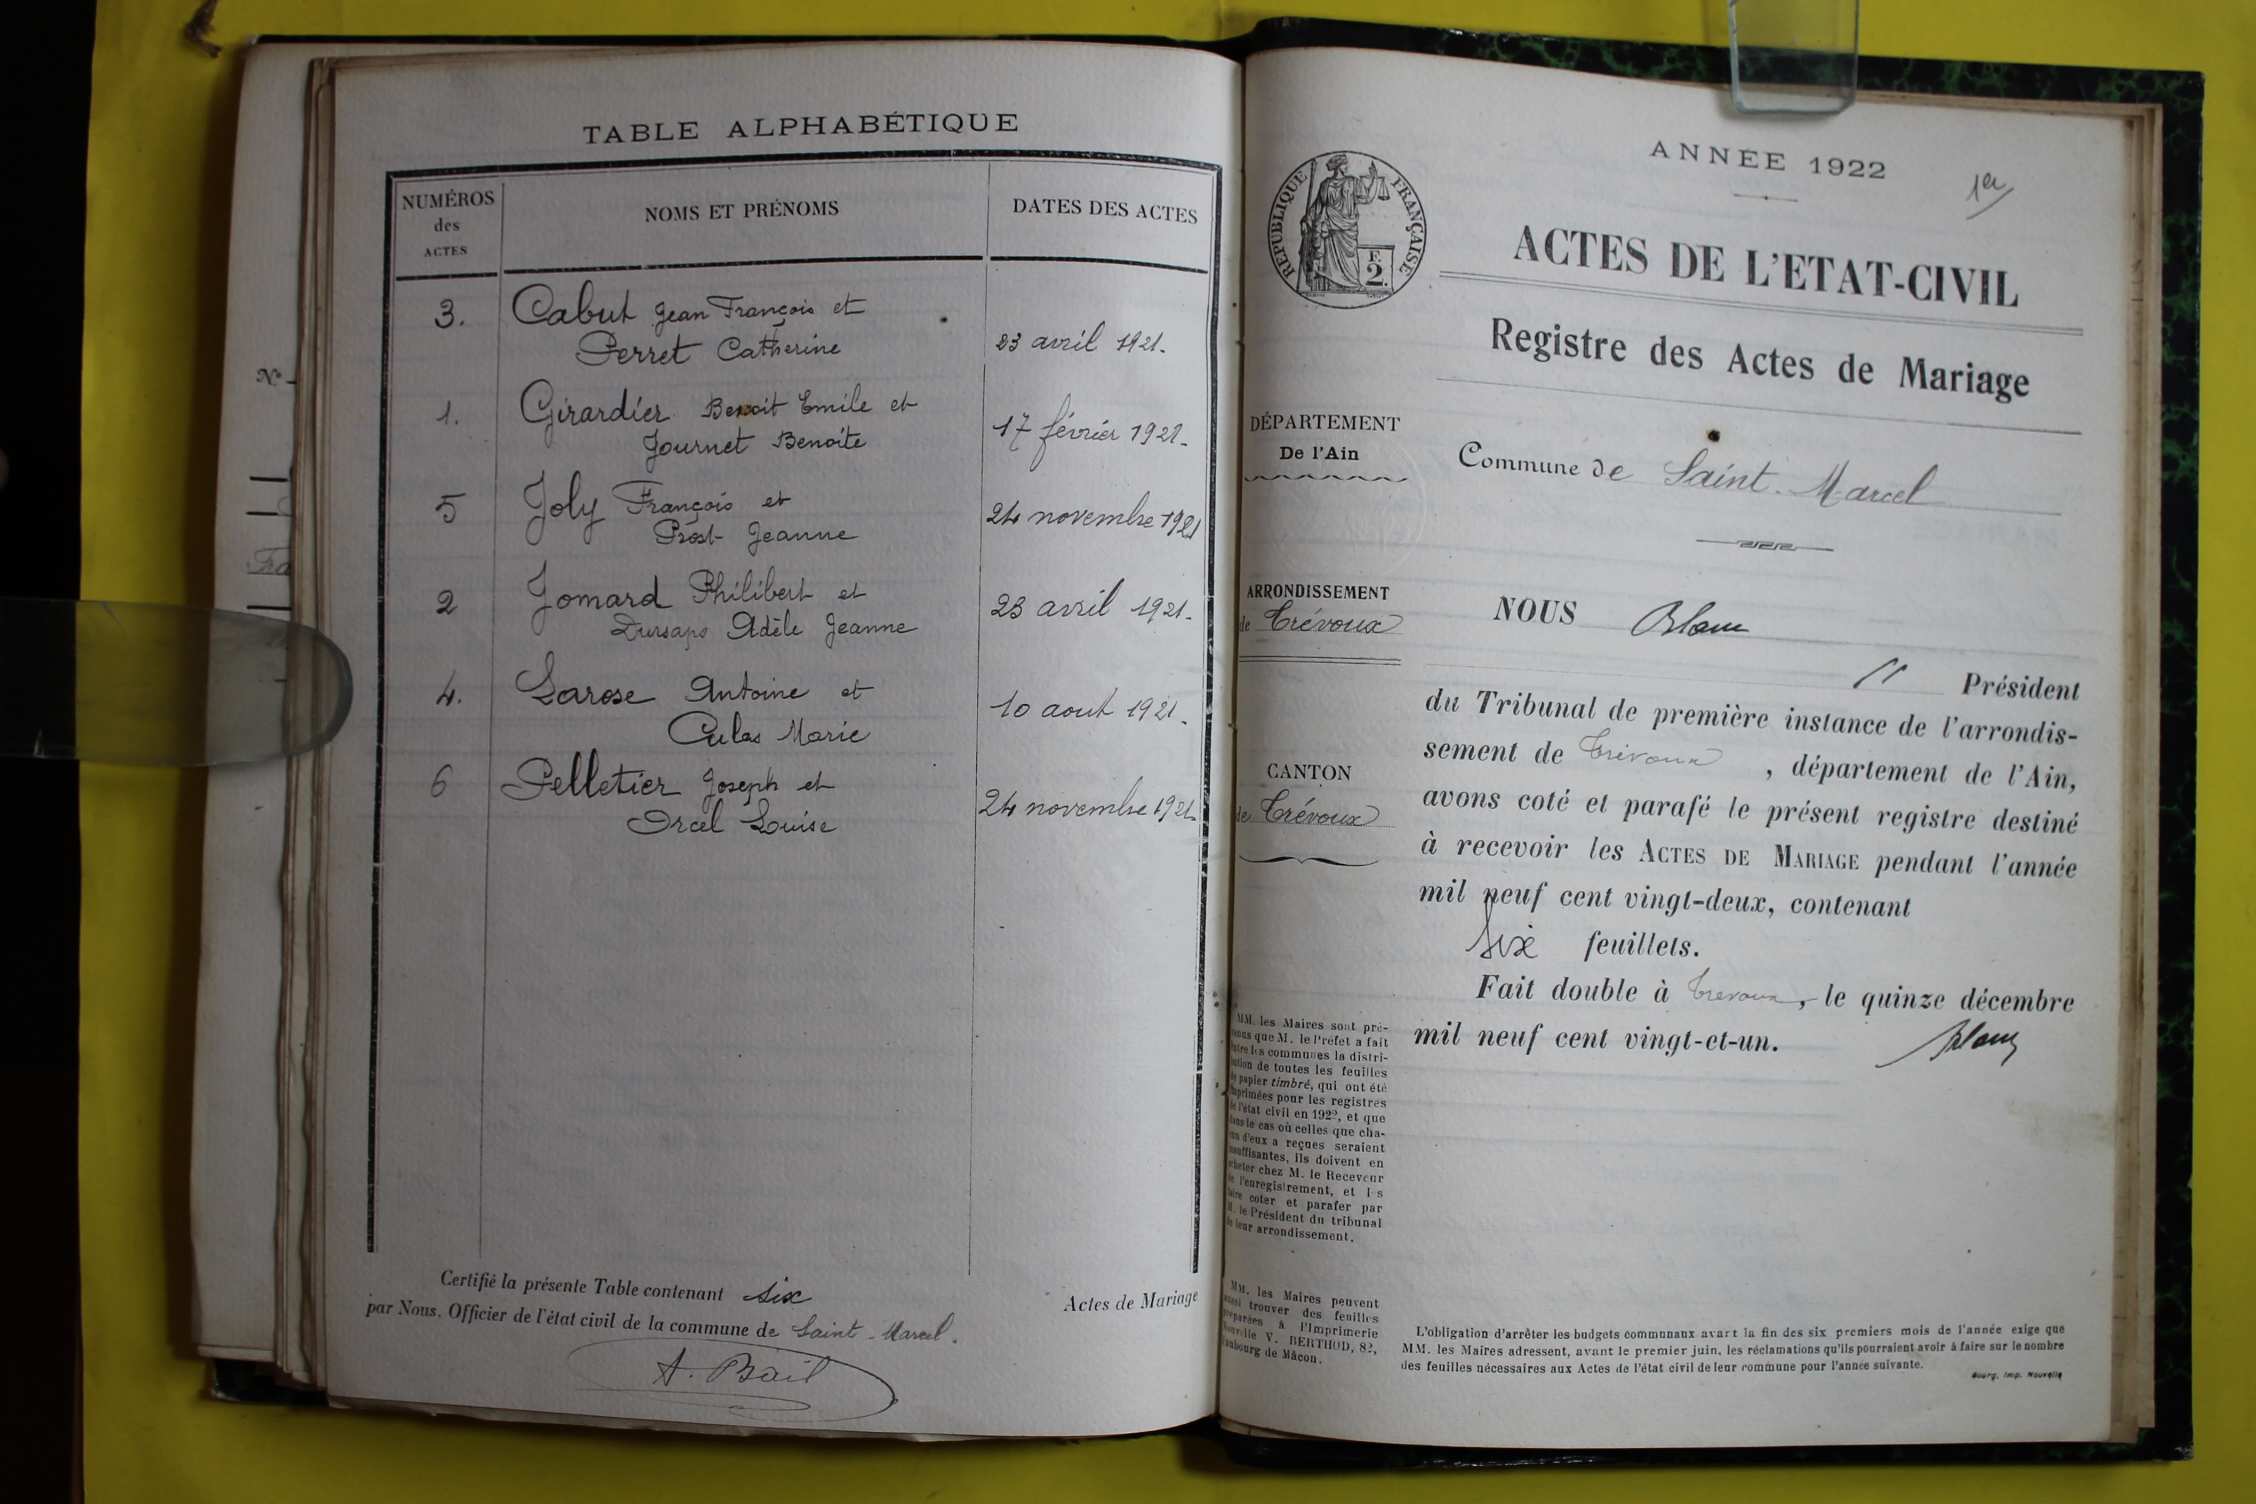 TABLE ALPHABÉTIQUE
NUMÉROS
des
ACTES
NOMS ET PRÉNOMS
DATES DES ACTES
3. Cabut Jean François et
Perret Catherine 23 avril 1921.
1. Girardier Benoit Emile et
Journet Benoîte 17 février 1921.
5 Joly François et
Prost Jeanne 24 novembre 1921
2 Jomard Philibert et
Dursapo Adèle Jeanne 23 avril 1921.
4. Larose Antoine et
Culas Marie 10 aout 1921.
6 Pelletier Joseph et
Orcel Louise 24 novembre 1921
Certifié la présente Table contenant six Actes de Mariage
par Nous. Officier de l'état civil de la commune de Saint-Marcel.
A. Bail
N°
ANNÉE 1922
1er
RÉPUBLIQUE FRANÇAISE
F.
2.
ACTES DE L'ETAT-CIVIL
Registre des Actes de Mariage
DÉPARTEMENT
De l'Ain
Commune de Saint-Marcel
ARRONDISSEMENT
de Trévoux
CANTON
de Trévoux
NOUS Blanc
Président
du Tribunal de première instance de l'arrondis-
sement de Trévoux, département de l'Ain,
avons coté et parafé le présent registre destiné
à recevoir les ACTES DE MARIAGE pendant l'année
mil neuf cent vingt-deux, contenant
six feuillets.
Fait double à Trevoux, le quinze décembre
mil neuf cent vingt-et-un.
Blanc
MM. les Maires sont pré-
venus que M. le Préfet a fait
entre les communes la distri-
bution de toutes les feuilles
de papier timbré, qui ont été
imprimées pour les registres
de l'état civil en 1922, et que
dans le cas où celles que cha-
cun d'eux a reçues seraient
insuffisantes, ils doivent en
acheter chez M. le Receveur
de l'enregistrement, et l s
faire coter et parafer par
M. le Président du tribunal
de leur arrondissement.
MM. les Maires peuvent
aussi trouver des feuilles
préparées à l'Imprimerie
Nouvelle V. BERTHOD, 82,
faubourg de Mâcon.
L'obligation d'arrêter les budgets communaux avant la fin des six premiers mois de l'année exige que
MM. les Maires adressent, avant le premier juin, les réclamations qu'ils pourraient avoir à faire sur le nombre
des feuilles nécessaires aux Actes de l'état civil de leur commune pour l'année suivante.
Bourg, Imp. Nouvelle